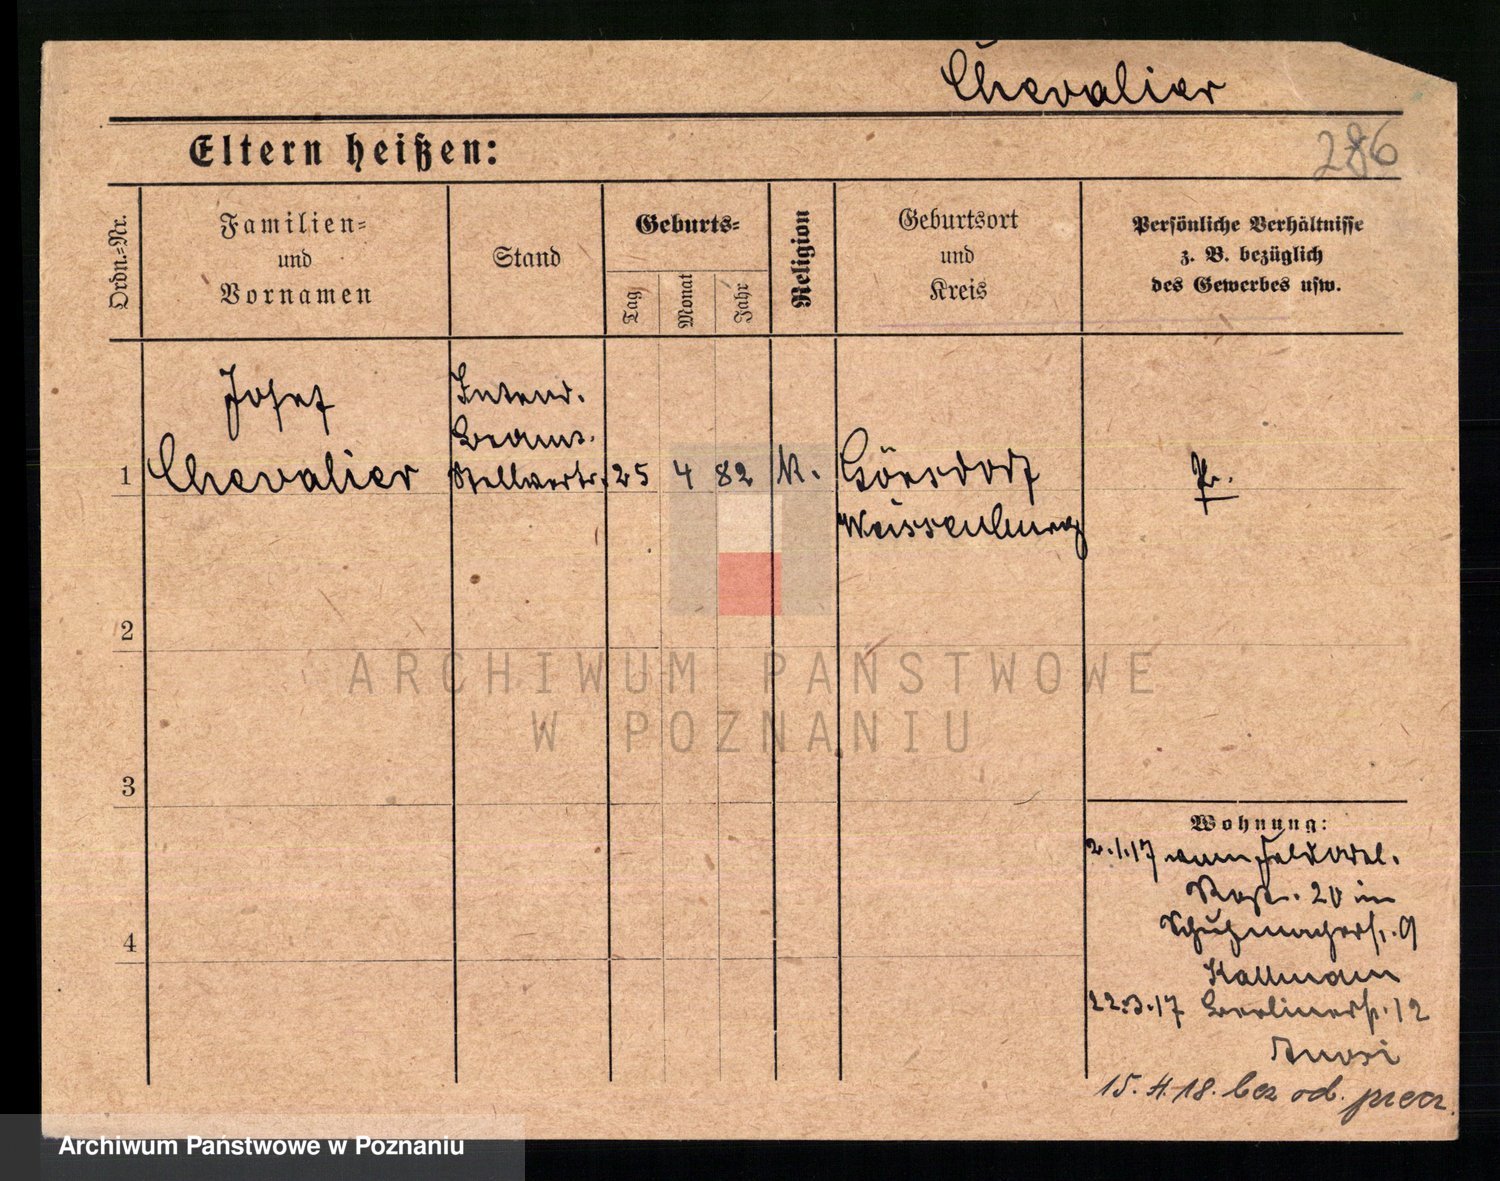 Chevalier
286
Eltern heißen:
Ordn.-Nr.
Familien-
und
Vornamen
Stand
Geburts-
Tag
Monat
Jahr
Religion
Geburtsort
und
Kreis
Persönliche Verhältnisse
z. B. bezüglich
des Gewerbes usw.
Josef
Chevalier
Intend.
Beamt.
Stellvertr.
1
25
4
82
K.
Görsdorf
Weissenburg
Pr.
2
3
4
ARCHIWUM PAŃSTWOWE
W POZNANIU
Wohnung:
2.1.17 vom Feldart.
20 in
Schuhmacherst. 9
Kallmann
22.3.17 Berlinerst. 12
15.4.18. bez od.
Archiwum Państwowe w Poznaniu